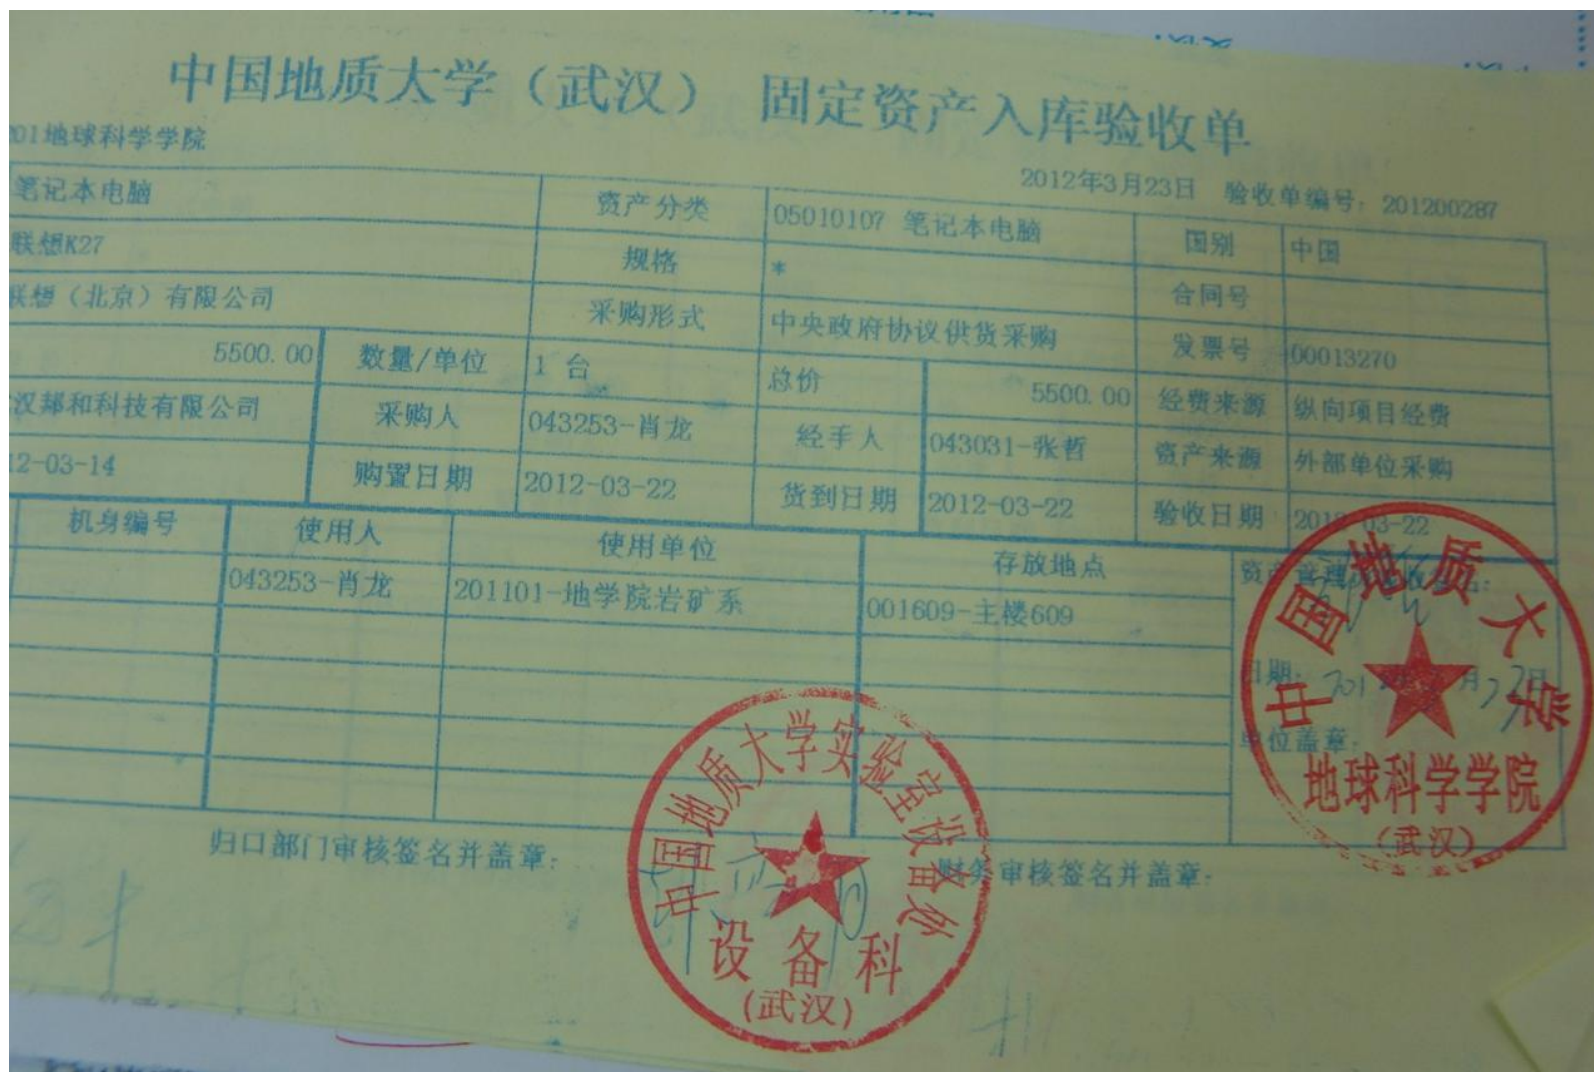 中国地质大学（武汉） 固定资产入库验收单
01地球科学学院
2012年3月23日 验收单编号：201200287
笔记本电脑 资产分类 05010107 笔记本电脑 国别 中国
联想K27 规格 * 合同号
联想（北京）有限公司 采购形式 中央政府协议供货采购 发票号 00013270
5500.00 数量/单位 1 台 总价 5500.00 经费来源 纵向项目经费
汉邦和科技有限公司 采购人 043253-肖龙 经手人 043031-张哲 资产来源 外部单位采购
12-03-14 购置日期 2012-03-22 货到日期 2012-03-22 验收日期 2012-03-22
机身编号 使用人 使用单位 存放地点
043253-肖龙 201101-地学院岩矿系 001609-主楼609
日期：
单位盖章：
中国地质大学
地球科学学院
（武汉）
归口部门审核签名并盖章：
财务审核签名并盖章：
中国地质大学实验室设备处
设备科
（武汉）